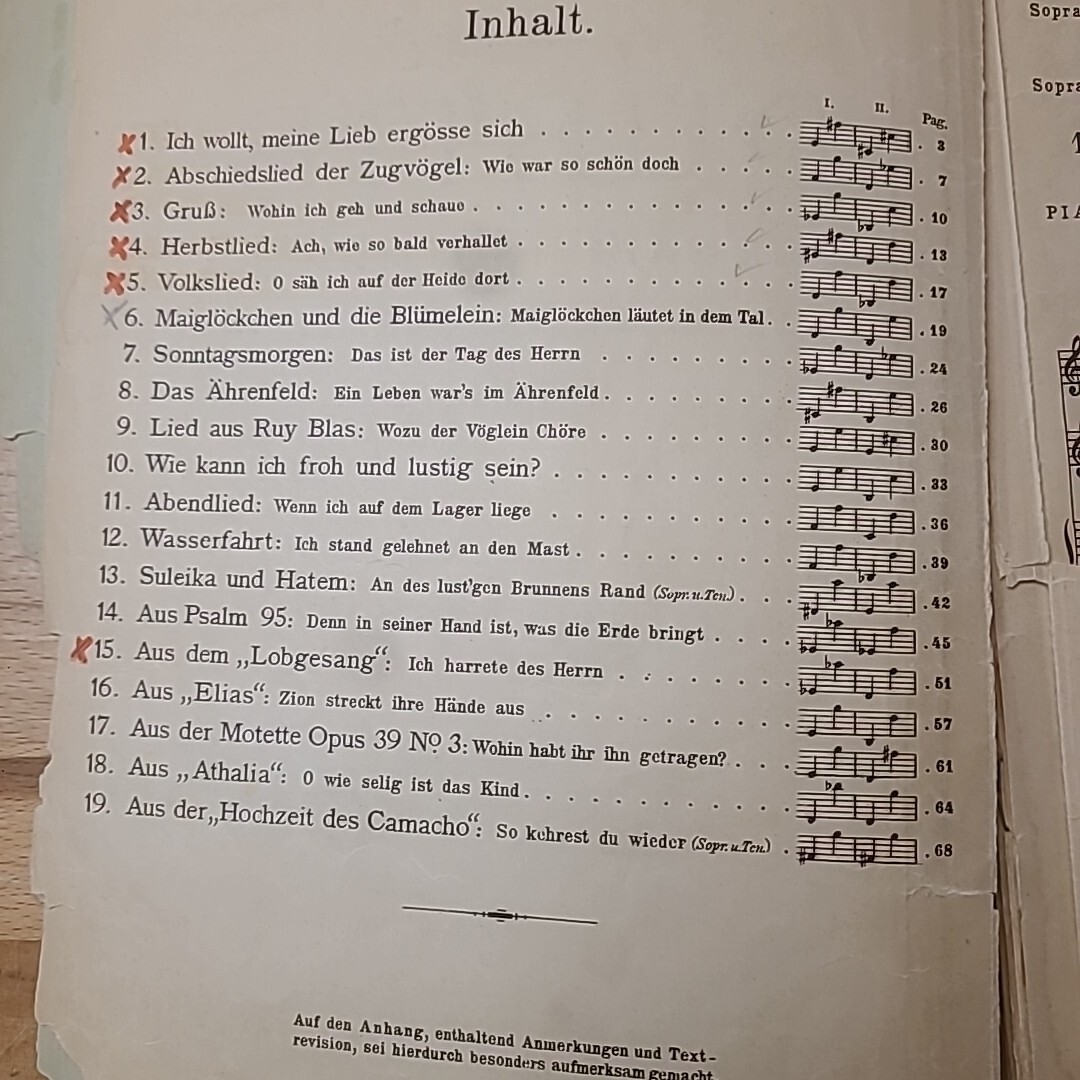 Inhalt.
I. II. Pag.
1. Ich wollt, meine Lieb ergösse sich . 3
2. Abschiedslied der Zugvögel: Wie war so schön doch . 7
3. Gruß: Wohin ich geh und schaue . 10
4. Herbstlied: Ach, wie so bald verhallet . 13
5. Volkslied: O säh ich auf der Heide dort . 17
6. Maiglöckchen und die Blümelein: Maiglöckchen läutet in dem Tal . 19
7. Sonntagsmorgen: Das ist der Tag des Herrn . 24
8. Das Ährenfeld: Ein Leben war's im Ährenfeld . 26
9. Lied aus Ruy Blas: Wozu der Vöglein Chöre . 30
10. Wie kann ich froh und lustig sein? . 33
11. Abendlied: Wenn ich auf dem Lager liege . 36
12. Wasserfahrt: Ich stand gelehnet an den Mast . 39
13. Suleika und Hatem: An des lust'gen Brunnens Rand (Sopr. u. Ten.) . 42
14. Aus Psalm 95: Denn in seiner Hand ist, was die Erde bringt . 45
15. Aus dem „Lobgesang“: Ich harrete des Herrn . 51
16. Aus „Elias“: Zion streckt ihre Hände aus . 57
17. Aus der Motette Opus 39 No. 3: Wohin habt ihr ihn getragen? . 61
18. Aus „Athalia“: O wie selig ist das Kind . 64
19. Aus der „Hochzeit des Camacho“: So kehrest du wieder (Sopr. u. Ten.) . 68
Auf den Anhang, enthaltend Anmerkungen und Text-
revision, sei hierdurch besonders aufmerksam gemacht